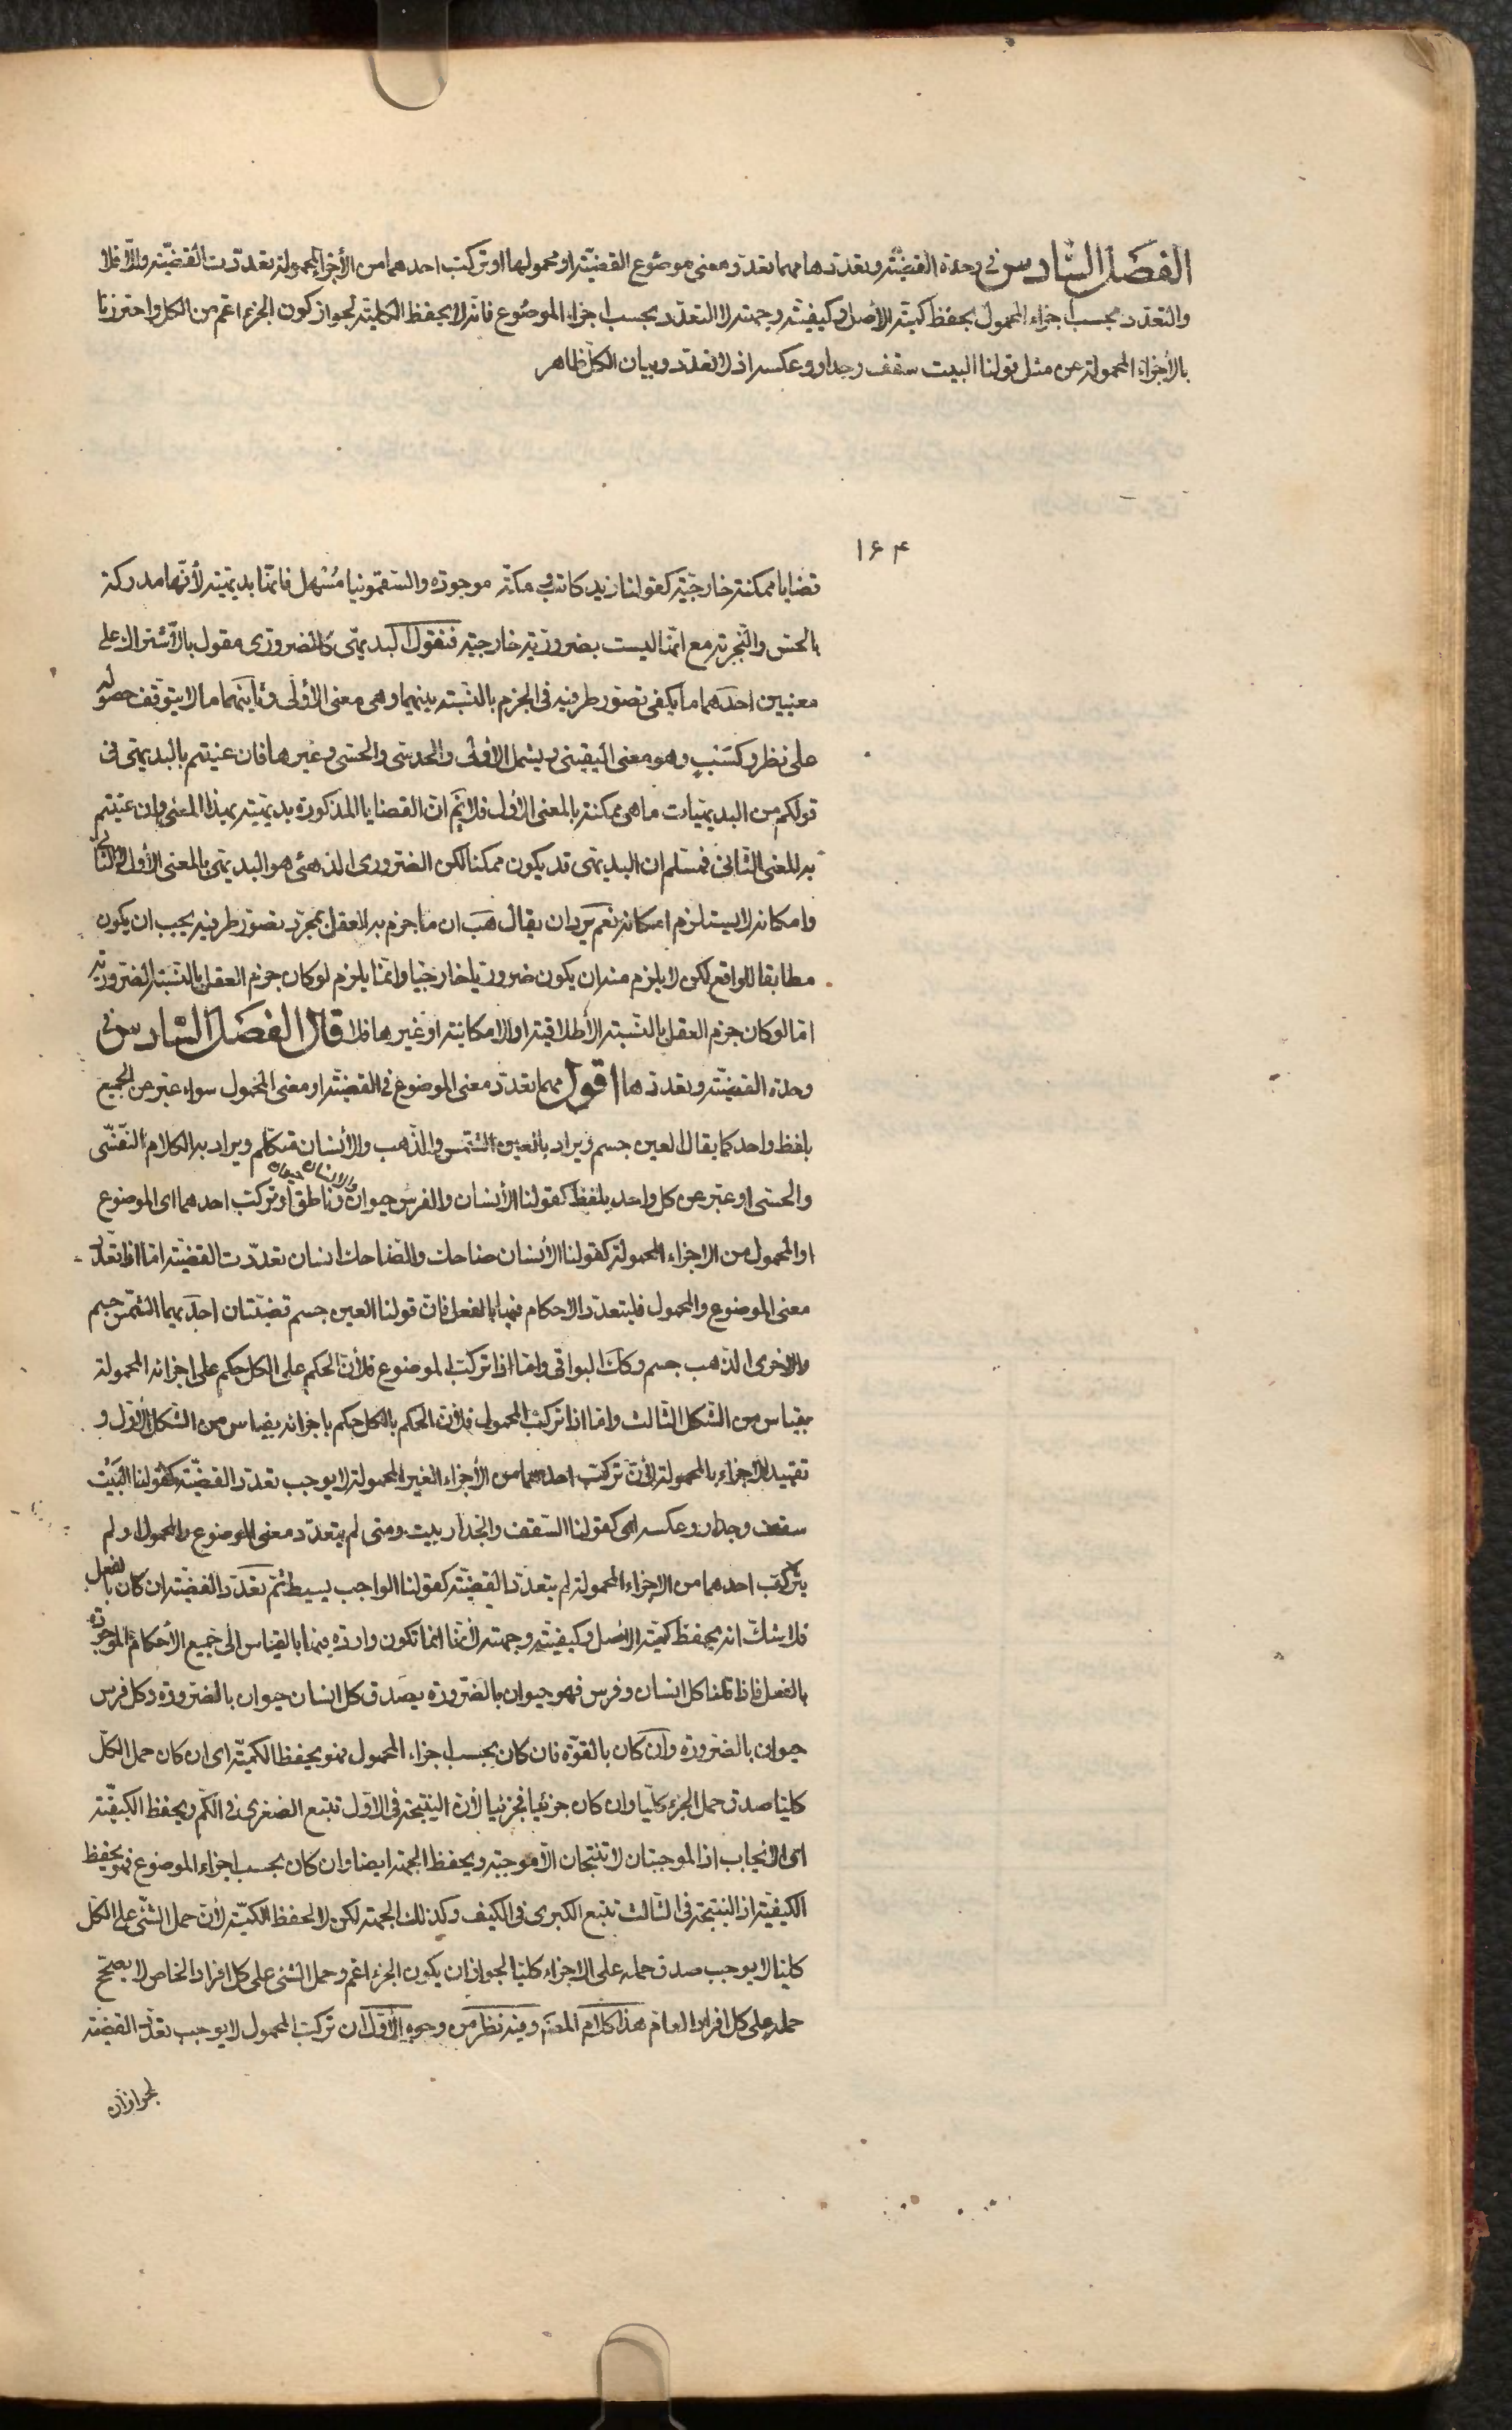 الفصل السادس في وحدة القضية وتعددها مهما تعدد معنى موضوع القضية او محمولها او تركب احدهما من الأجزاء المحمولة تعددت القضية والّا فلا
والتعدد بحسب اجزاء المحمول يحفظ كمية الأصل وكيفيته وجهته لا التعدد بحسب اجزاء الموضوع فانه لا يحفظ الكلية لجواز كون الجزء اعم من الكل واحترزنا
بالأجزاء المحمولة عن مثل قولنا البيت سقف وجدار وعكسه اذ لا تعدد وبيان الكل ظاهر
١٦٤
قضايا ممكنة خارجية كقولنا زيد كاتب ومكة موجودة والسقمونيا مُسهل فانها بديهية لأنها مدركة
بالحس والتجربة مع انها ليست بضرورية خارجية فنقول البديهي كالضروري مقول بالأشتراك على
معنيين احدهما ما يكفي تصور طرفيه في الجزم بالنسبة بينهما وهى معنى الأولى وثانيهما ما لا يتوقف حصوله
على نظر وكسب وهو معنى اليقيني ويشمل الأولى والحدسي والحسي وغيرها فان عنيتم بالبديهي في
قولكم من البديهيات ما هي ممكنة بالمعنى الأول فلا نم ان القضايا المذكورة بديهية بهذا المعنى وان عنيتم
به المعنى الثاني فمسلم ان البديهي قد يكون ممكنا لكن الضروري الذهني هو البديهي بالمعنى الأول لا الثاني
وامكانه لا يستلزم امكانه نعم يرد ان يقال هب ان ما جزم به العقل بمجرد تصور طرفيه يجب ان يكون
مطابقا للواقع لكن لا يلزم منه ان يكون ضروريا خارجيا وانما يلزم لو كان جزم العقل بالنسبة الضرورية
اما لو كان جزم العقل بالنسبة الأطلاقية او الامكانية او غيرها فلا قال الفصل السادس في
وحدة القضية وتعددها اقول مهما تعدد معنى الموضوع في القضية او معنى المحمول سواء عبر عن الجميع
بلفظ واحد كما يقال العين جسم ويراد بالعين الشمس والذهب والأنسان متكلم ويراد به الكلام النفسي
والحسي او عبر عن كل واحد بلفظ كقولنا الأنسان والفرس حيوان والانسان حيوان وناطق او تركب احدهما اى الموضوع
او المحمول من الاجزاء المحمولة كقولنا الأنسان ضاحك والضاحك انسان تعددت القضية اما اذا تعدد
معنى الموضوع والمحمول فلتعدد الاحكام فيها بالفعل فان قولنا العين جسم قضيتان احديهما الشمس جسم
والاخرى الذهب جسم وكذا البواقي واما اذا تركب الموضوع فلأن الحكم على الكل حكم على اجزائه المحمولة
بقياس من الشكل الثالث واما اذا تركب المحمول فلأن الحكم بالكل حكم باجزائه بقياس من الشكل الأول و
تقييد الاجزاء بالمحمولة لأن تركب احدهما من الأجزاء الغير المحمولة لا يوجب تعدد القضية كقولنا البيت
سقف وجدار وعكسه اى كقولنا السقف والجدار بيت ومتى لم يتعدد معنى الموضوع والمحمول او لم
يتركب احدهما من الاجزاء المحمولة لم يتعدد القضية كقولنا الواجب بسيط ثم تعدد القضية ان كان بالفعل
فلا شك انه يحفظ كمية الأصل وكيفيته وجهته لأنها انما تكون واردة فيها بالقياس الى جميع الأحكام الموجودة
بالفعل فاذا قلنا كل انسان وفرس فهو حيوان بالضرورة يصدق كل انسان حيوان بالضرورة وكل فرس
حيوان بالضرورة وان كان بالقوة فان كان بحسب اجزاء المحمول فهو يحفظ الكمية اى ان كان حمل الكل
كليا صدق حمل الجزء كليا وان كان جزئيا فجزئيا لأن النتيجة في الاول تتبع الصغرى في الكم ويحفظ الكيفية
اى الايجاب اذ الموجبتان لا تنتجان الا موجبة ويحفظ الجهة ايضا وان كان بحسب اجزاء الموضوع فهو يحفظ
الكيفية اذ النتيجة في الثالث تتبع الكبرى في الكيف وكذلك الجهة لكن لا يحفظ الكمية لأن حمل الشئ على الكل
كليا لا يوجب صدق حمله على الاجزاء كليا لجواز ان يكون الجزء اعم وحمل الشئ على كل افراد الخاص لا يصحح
حمله على كل افراد العام هذا كلام المصنف وفيه نظر من وجوه الأول ان تركب المحمول لا يوجب تعدد القضية
لجواز ان